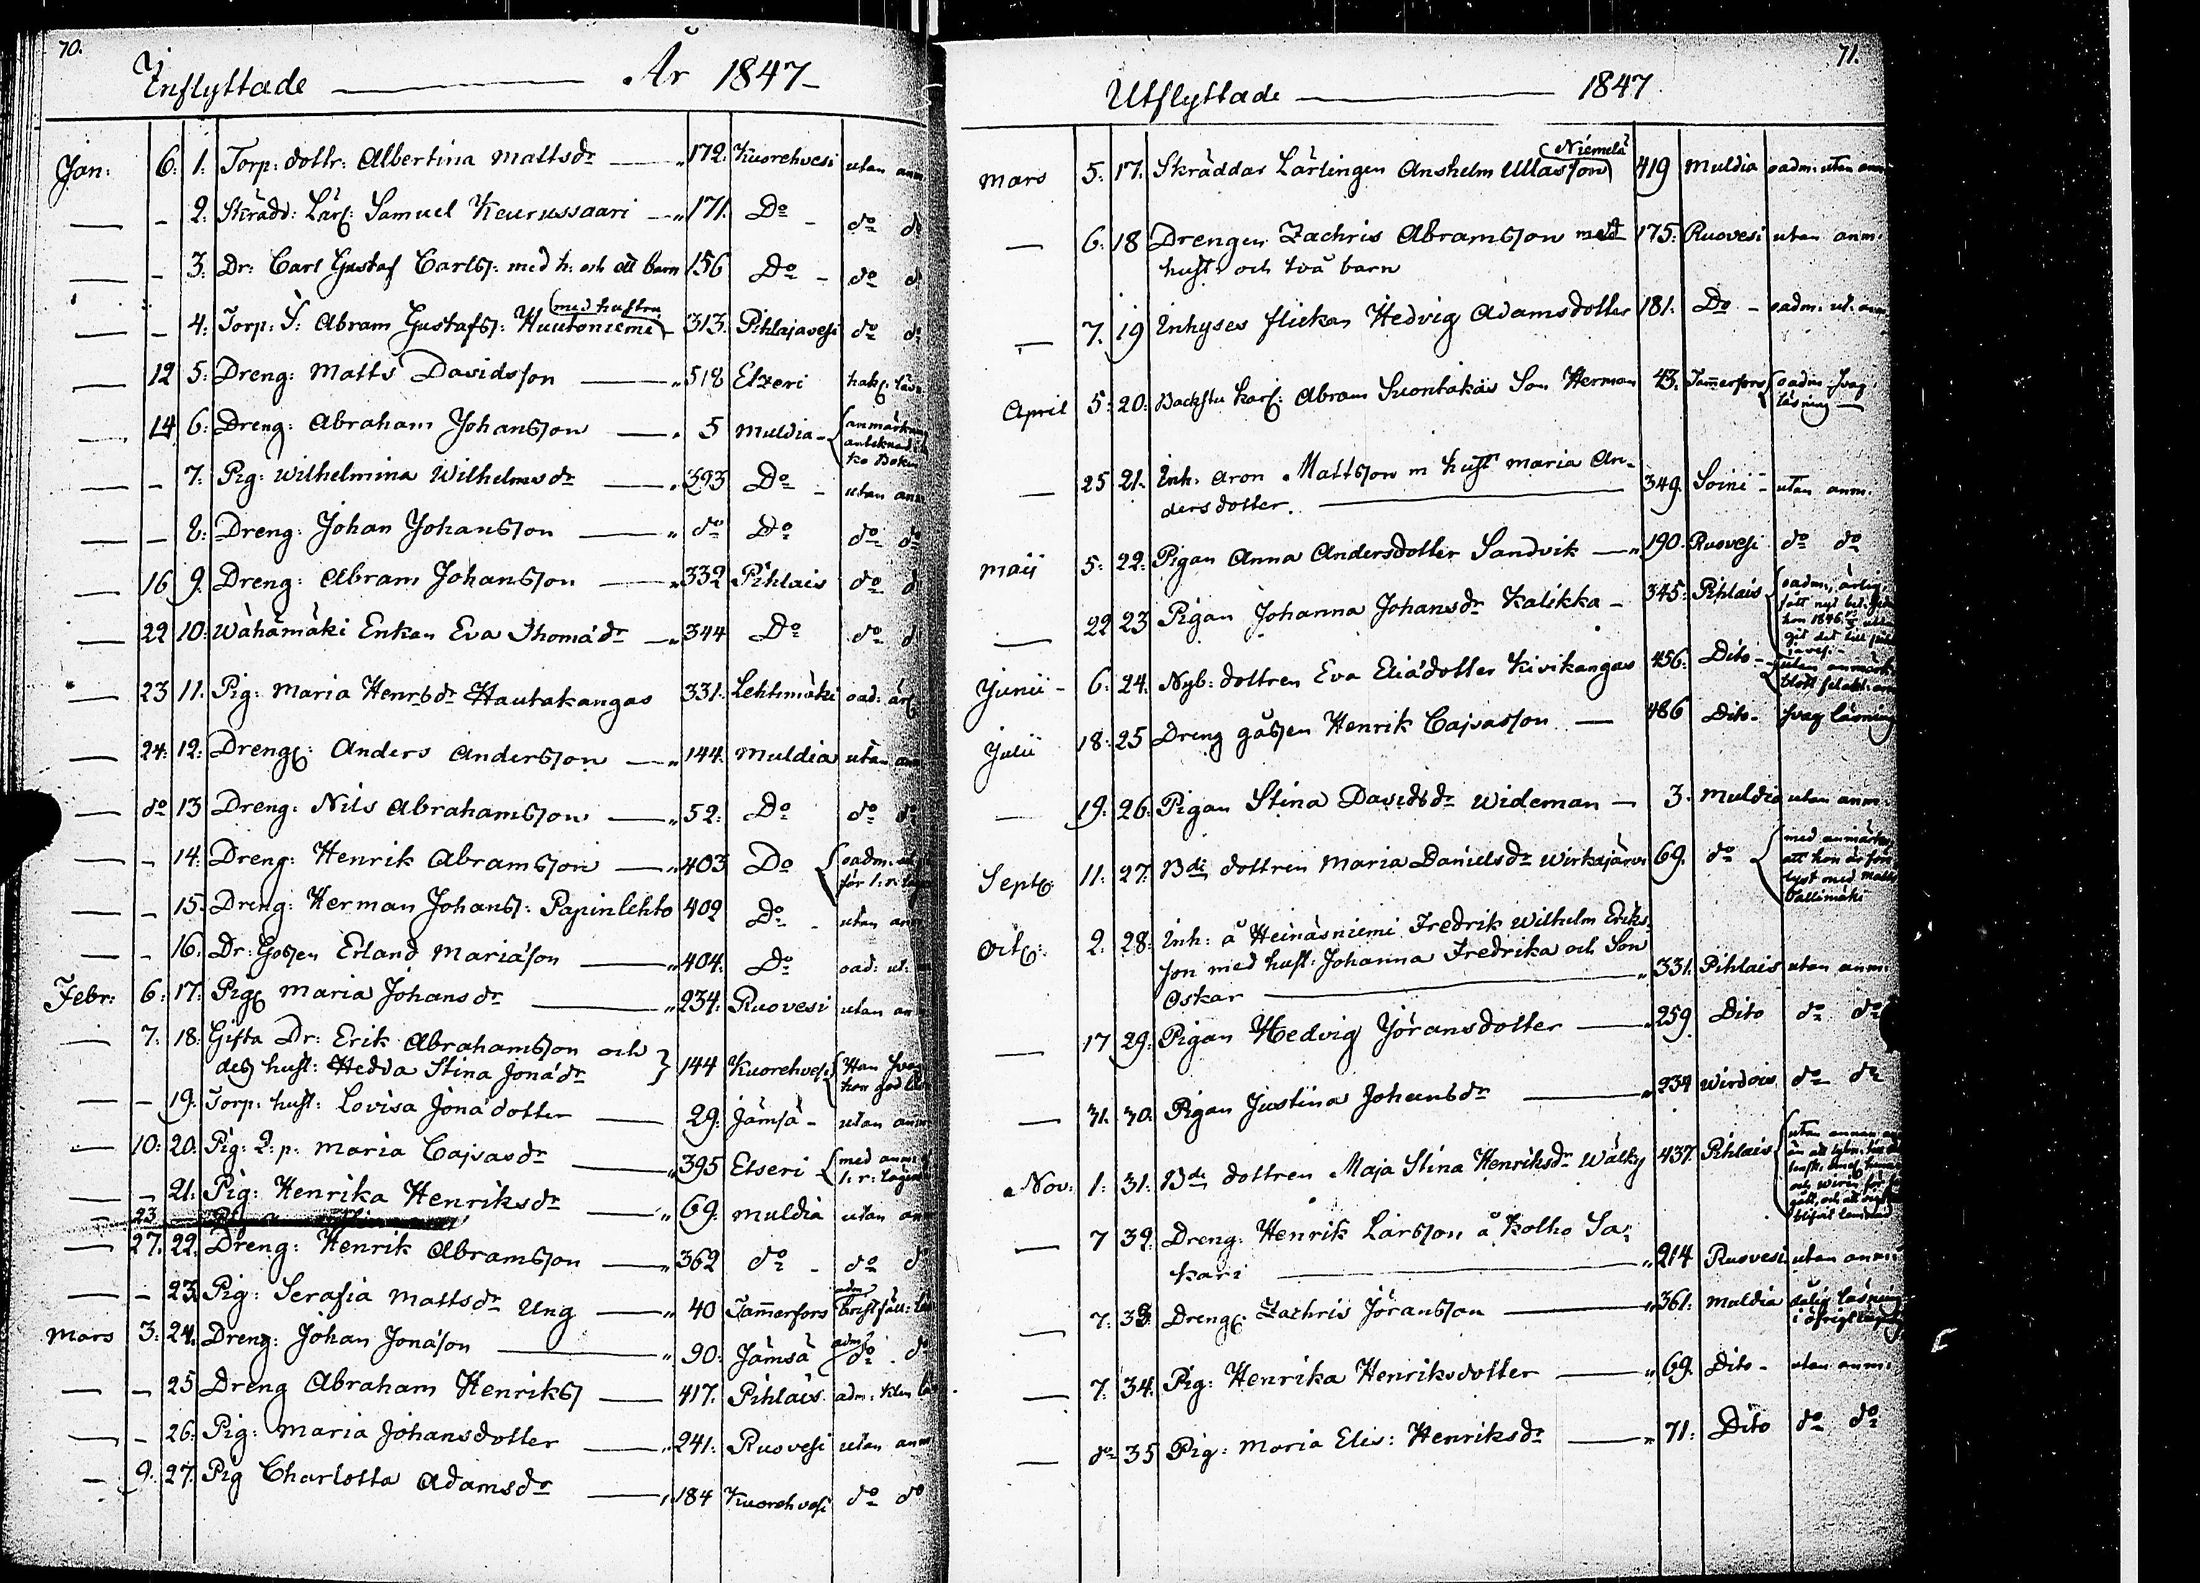 70.
Inflyttade — År 1847
Jan: 6. 1. Torp: dottr: Albertina Mattsdr — " 172. Kuorehvesi utan anm
— - 2. Skrädd: Lärl: Samuel Keurussaari — " 171. Do - do d
— - 3. Dr: Carl Gustaf Carlss: med h: och ett barn 156 Do - do d
(med hustru
— - 4. Torp: S: Abram Gustafss: Huutoniemi 313. Pihlajavesi do do
— 12 5. Dreng: Matts Davidsson — " 518 Etzeri
— 14 6. Dreng: Abraham Johansson — " 5 Muldia -
— - 7. Pig: Wilhelmina Wilhelmsdr — " 393 Do - utan anm
— - 8. Dreng: Johan Johansson — " do Do do do
— 16 9. Dreng: Abram Johansson — " 332 Pihlais do d
— 22 10. Wähämäki Enkan Eva Thomädr — " 344 Do do d
— 23 11. Pig: Maria Henrsdr Hautakangas 331. Lehtimäki oad: ärl
— 24. 12. Drengl: Anders Andersson — " 144. Muldia utan anm
— do 13 Dreng: Nils Abrahamsson — " 52. Do do do
— - 14. Dreng: Henrik Abramsson — " 403 Do
— - 15. Dreng: Herman Johanss: Papinlehto 402 Do - utan anm
— - 16. Dr: Gossen Erland Mariäson — " 404. Do oad: ut:
Febr: 6. 17. Pigl Maria Johansdr — " 234. Ruovesi utan an
— 7. 18. Gifta Dr: Erik Abrahamsson och
dess hust: Hedda Stina Jonädr } 144 Kuorehvesi
— - 19. Torp: hust: Lovisa Jonädotter — 29. Jämsä - utan anm
— 10: 20. Pig: Q: p: Maria Cajsasdr — " 395 Etseri {med anm:
— - 21. Pig: Henrika Henriksdr — " 69. Muldia utan an
23
— 27. 22. Dreng: Henrik Abramsson — " 362 do - do d
— - 23. Pig: Serafia Mattsdr Ung — " 40 Tammerfors
Mars 3. 24. Dreng: Johan Jonäson — " 90. Jämsä do do
— - 25 Dreng Abraham Henrikss — 417. Pihlais
— - 26. Pig: Maria Johansdotter — " 241. Ruovesi utan anm
— 9. 27. Pig Charlotta Adamsdr — " 184 Kuorehvesi do do
71.
Utflyttade — 1847
(Niemelä
Mars 5. 17. Skräddar Lärlingen Anshelm Ullasson) 419 Muldia oadm: utan anm
— 6. 18 Drengen Zachris Abramsson med 175. Ruovesi utan anm.
hust: och två barn
— 7. 19 Inhyses flickan Hedvig Adamsdotter 181. Do - oadm: ut: anm
April 5. 20. Backstu karl: Abram Suontakas Son Herman 43. Tammerfors {oadm: svag
läsning —
— 25 21. Inh. Aron Mattsson m hust Maria An-
dersdotter. — 349. Soini - utan anm.
Maij 5. 22. Pigan Anna Andersdotter Sandvik — " 190. Ruovesi do do
— 22 23 Pigan Johanna Johansdr Kalikka - 345. Pihlais
Junii - 6. 24. Nyb: dottren Eva Eliädotter Kivikangas 456. Dito -
Julii 18. 25 Dreng gåssen Henrik Cajsasson — 486 Dito - svag läsning
— 19. 26. Pigan Stina Davidsdr Wideman — 3. Muldia utan anm:
Septb: 11. 27. Bde dottren Maria Danielsdr Wirkajärvi 69. do {med anmärkn
att hon är för
lyst med Matts
Vallimäki
Octb: 2. 28. Inh: å Heinäsniemi Fredrik Wilhelm Eriks
son med hust: Johanna Fredrika och Son
Oskar — " 331. Pihlais utan anm:
— 17 29. Pigan Hedvig Jöransdotter — " 259. Dito do do
— 31. 30. Pigan Justina Johansdr — " 234 Wirdois do do
Nov: 1. 31. Bde dottren Maja Stina Henriksdr Wälky 437. Pihlais
— 7 32. Dreng: Henrik Larsson å Kolho Sa-
kari — " 214 Ruovesi utan anm:
— 7. 33. Drengl: Zachris Jöransson — " 361. Muldia dålig läsning
— 7. 34. Pig: Henrika Henriksdotter — " 69. Dito - utan anm:
— do 35 Pig: Maria Elis: Henriksdr — " 71. Dito do do